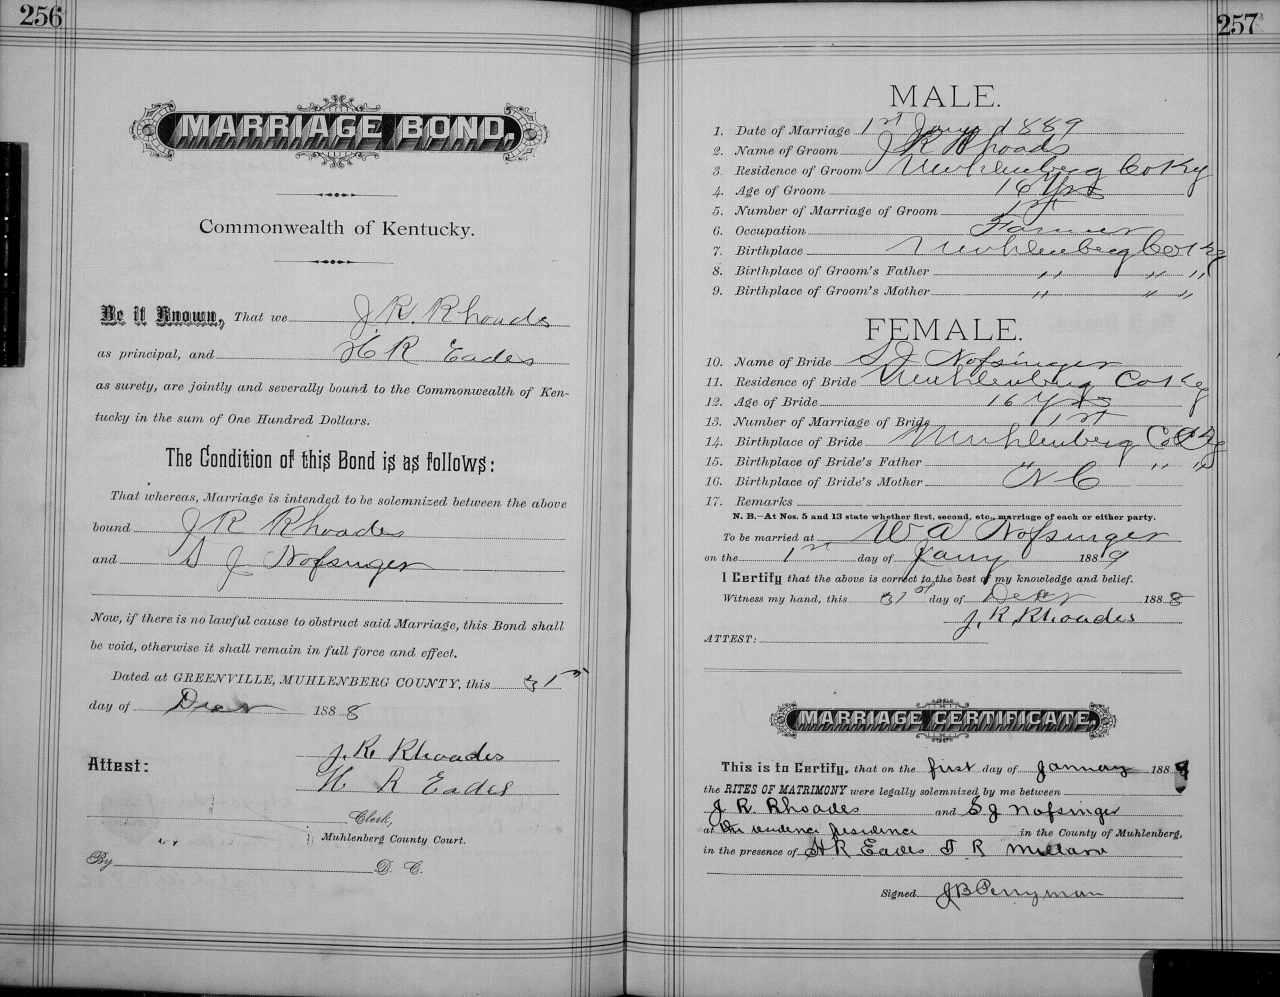 256
MARRIAGE BOND,
Commonwealth of Kentucky.
Be it Known, That we J. R. Rhoades
as principal, and H R Eades
as surety, are jointly and severally bound to the Commonwealth of Ken-
tucky in the sum of One Hundred Dollars.
The Condition of this Bond is as follows:
That whereas, Marriage is intended to be solemnized between the above
bound J R Rhoades
and S J Nofsinger
Now, if there is no lawful cause to obstruct said Marriage, this Bond shall
be void, otherwise it shall remain in full force and effect.
Dated at GREENVILLE, MUHLENBERG COUNTY, this 31st
day of Decr 1888
J. R. Rhoades
Attest:
H R Eades
Clerk,
Muhlenberg County Court.
By D. C.
257
MALE.
1. Date of Marriage 1st Jany 1889
2. Name of Groom J R Rhoads
3. Residence of Groom Muhlenberg Co Ky
4. Age of Groom Yrs
5. Number of Marriage of Groom 1st
6. Occupation Farmer
7. Birthplace Muhlenberg Co Ky
8. Birthplace of Groom's Father " " "
9. Birthplace of Groom's Mother " " "
FEMALE.
10. Name of Bride S J Nofsinger
11. Residence of Bride Muhlenberg Co Ky
12. Age of Bride 16 Yrs
13. Number of Marriage of Bride 1st
14. Birthplace of Bride Muhlenberg Co Ky
15. Birthplace of Bride's Father " " "
16. Birthplace of Bride's Mother N C
17. Remarks
N. B.—At Nos. 5 and 13 state whether first, second, etc., marriage of each or either party.
To be married at W A Nofsinger
on the 1st day of Jany 1889
I Certify that the above is correct to the best of my knowledge and belief.
Witness my hand, this 31st day of Decr 1888
J. R. Rhoades
ATTEST:
MARRIAGE CERTIFICATE.
This is to Certify, that on the first day of January 1889
the RITES OF MATRIMONY were legally solemnized by me between
J R. Rhoades and S. J Nofsinger
at in the County of Muhlenberg,
in the presence of H R Eades J R
Signed J B Perryman